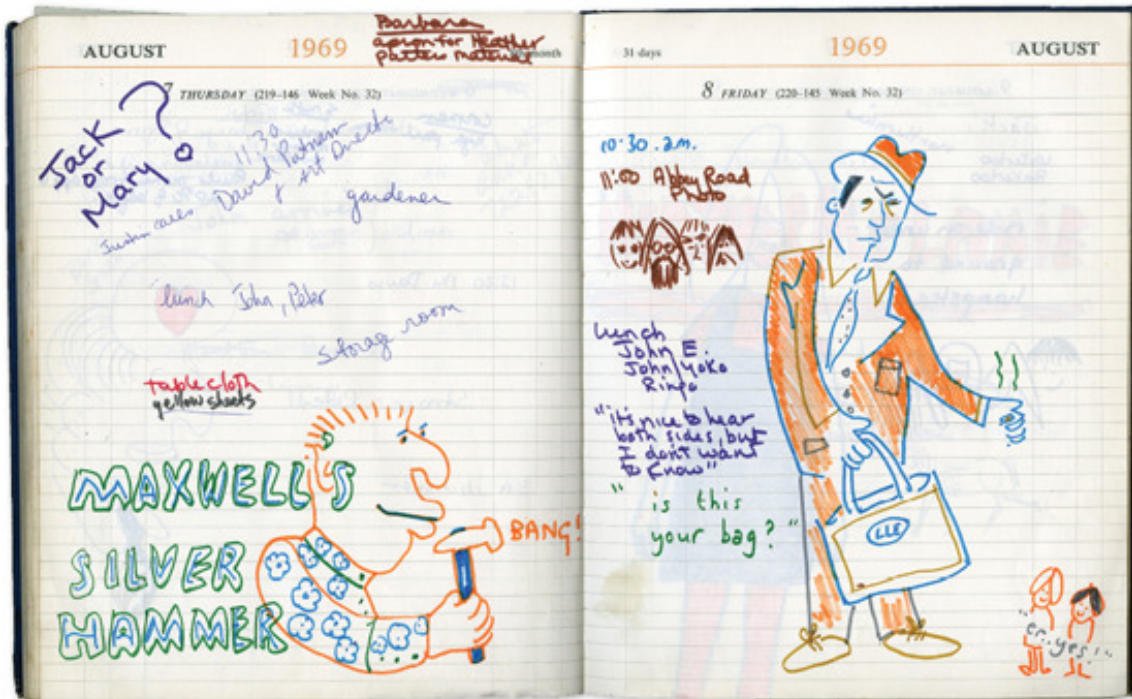 AUGUST 1969
Barbara
apron for Heather
pattern material
month
7 THURSDAY (219–146 Week No. 32)
Jack
or
Mary?
11.30
David Putnam
& Art Director
gardener
Justin
lunch John, Peter
storag room
table cloth
yellow sheets
MAXWELL'S
SILVER
HAMMER
BANG!
31 days 1969 AUGUST
8 FRIDAY (220–145 Week No. 32)
10.30.a.m.
11:00 Abbey Road
Photo
lunch
John E.
John/Yoko
Ringo
"it's nice to hear
both sides, but
I don't want
to know"
"is this
your bag?"
"er..yes!"